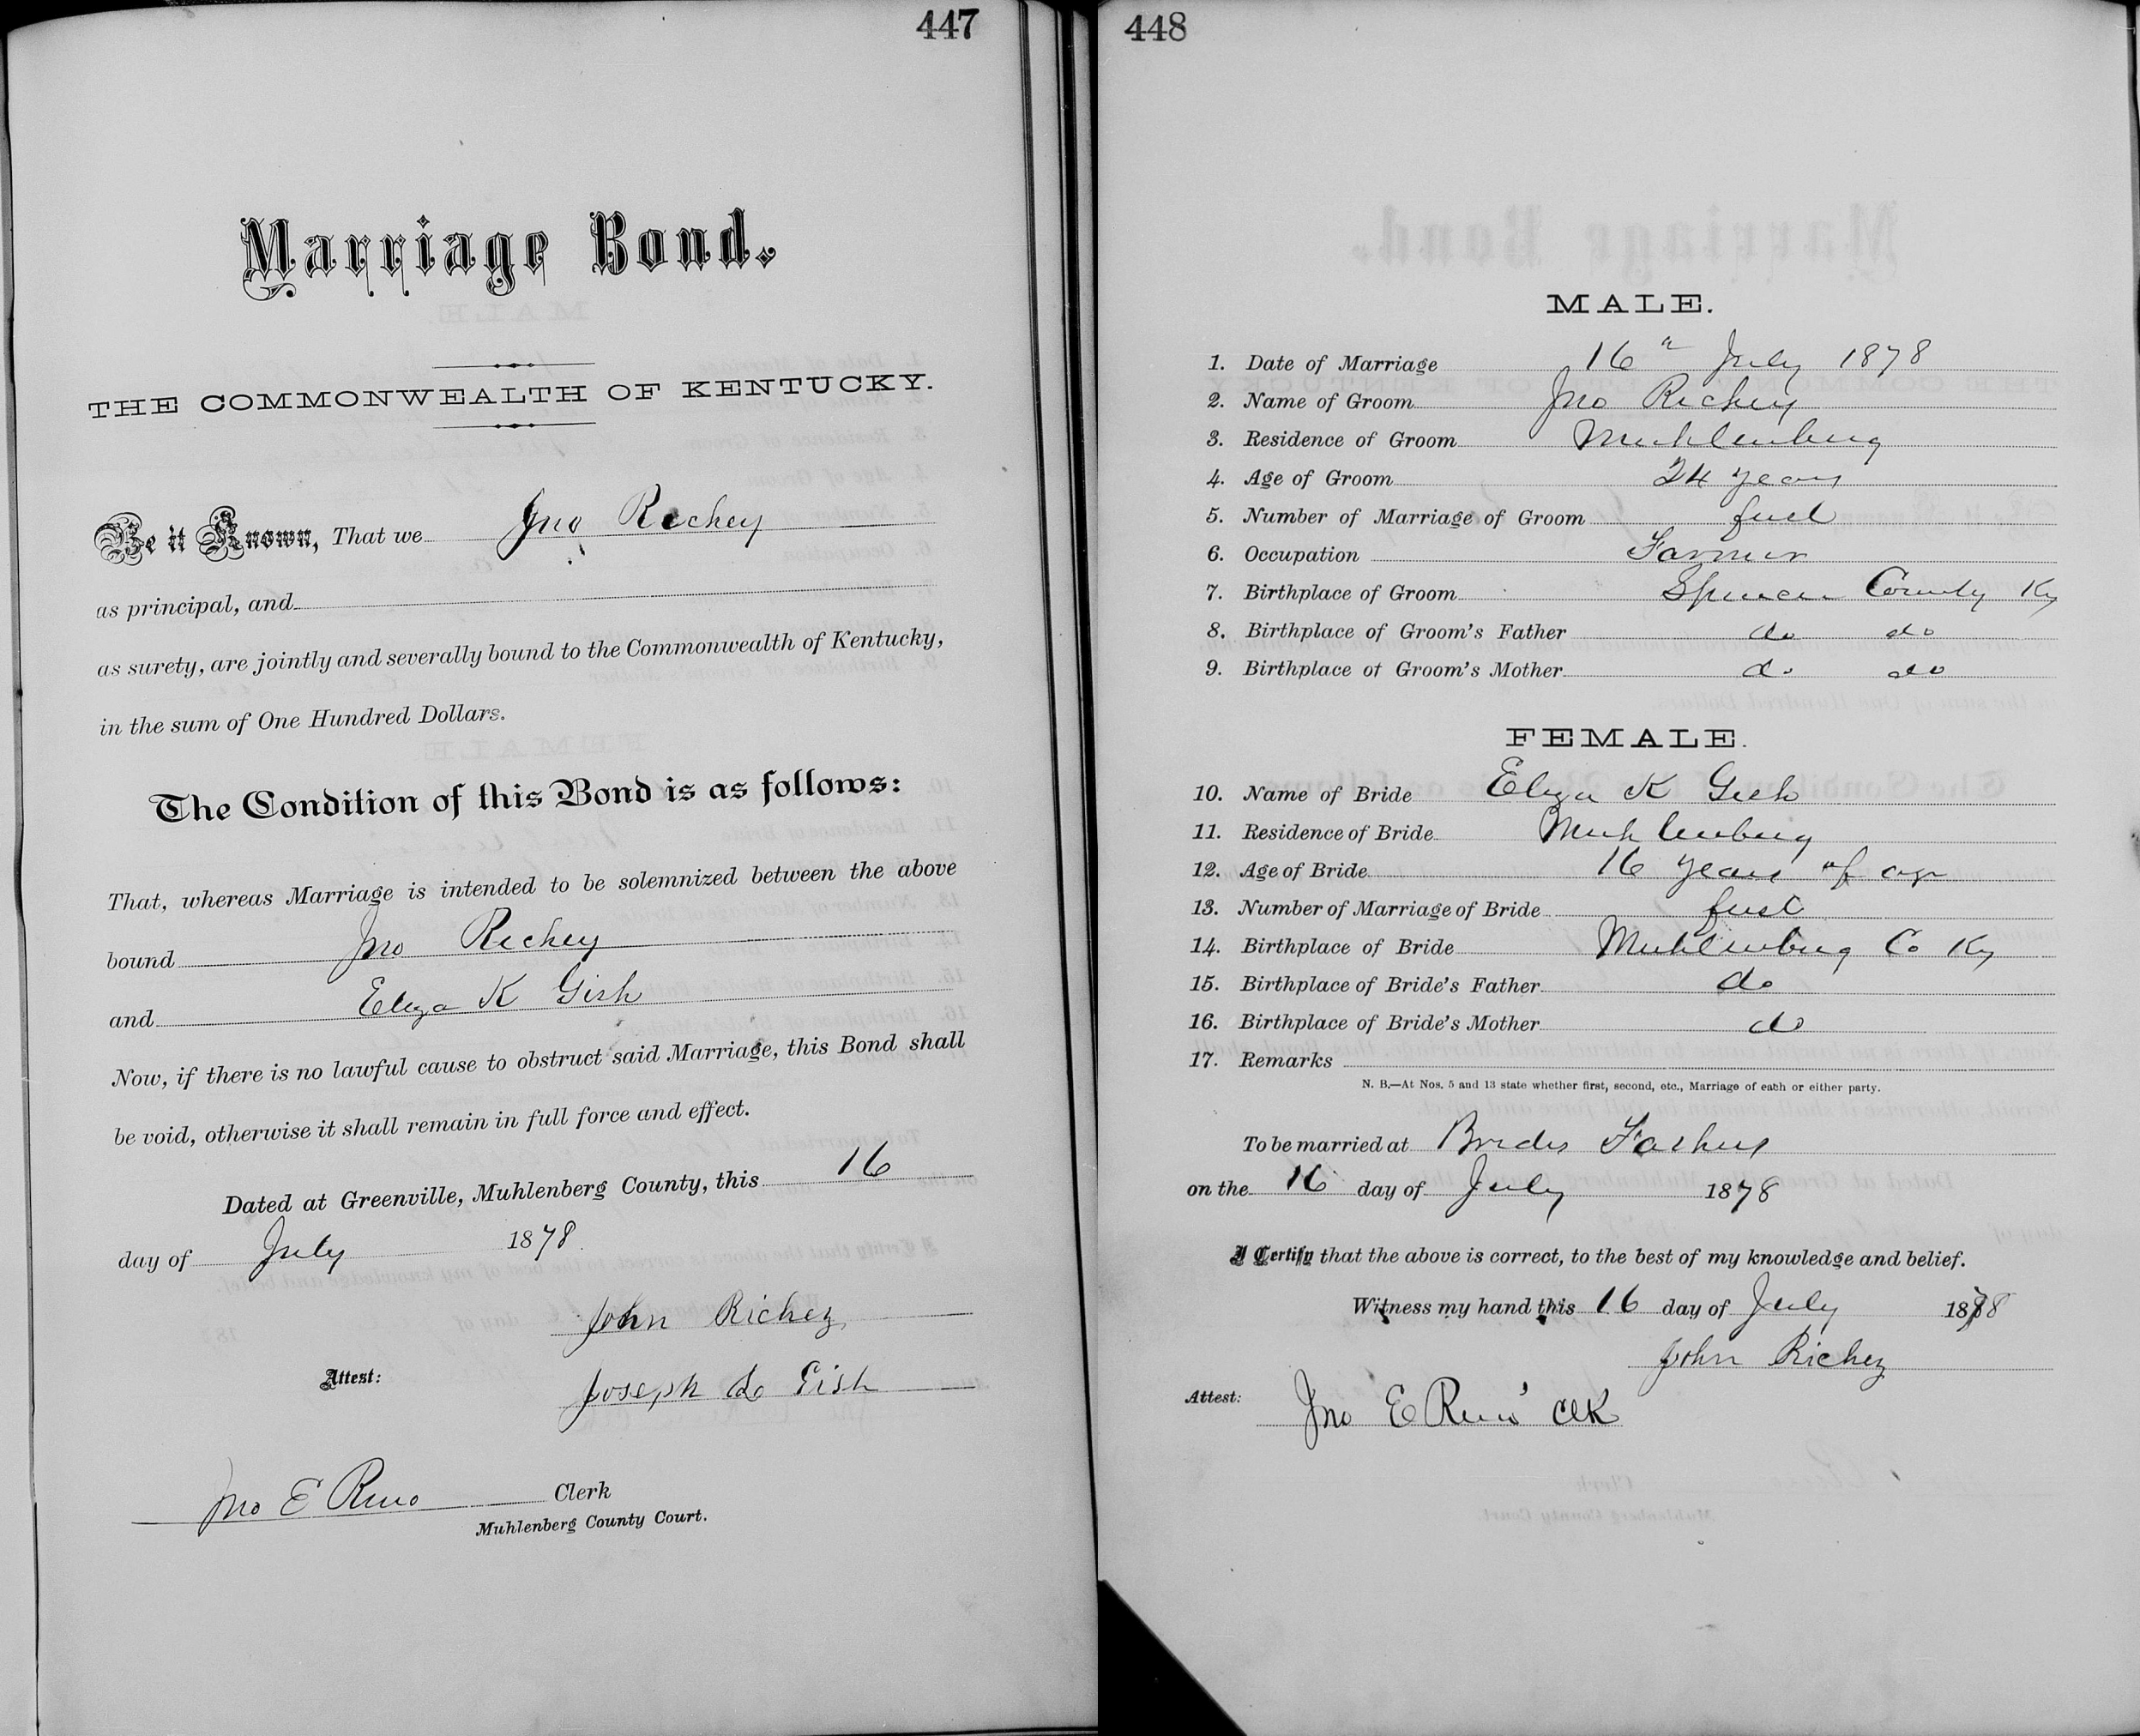 447
Marriage Bond.
THE COMMONWEALTH OF KENTUCKY.
Be it Known, That we Jno Richey
as principal, and
as surety, are jointly and severally bound to the Commonwealth of Kentucky,
in the sum of One Hundred Dollars.
The Condition of this Bond is as follows:
That, whereas Marriage is intended to be solemnized between the above
bound Jno Richey
and Eliza K Gish
Now, if there is no lawful cause to obstruct said Marriage, this Bond shall
be void, otherwise it shall remain in full force and effect.
Dated at Greenville, Muhlenberg County, this 16
day of July 1878
John Richey
Attest:
Joseph L Gish
Jno E Reno Clerk
Muhlenberg County Court.
448
MALE.
1. Date of Marriage 16th July 1878
2. Name of Groom Jno Richey
3. Residence of Groom Muhlenberg
4. Age of Groom 24 years
5. Number of Marriage of Groom first
6. Occupation Farmer
7. Birthplace of Groom Spencer County Ky
8. Birthplace of Groom's Father do do
9. Birthplace of Groom's Mother do do
FEMALE.
10. Name of Bride Eliza K Gish
11. Residence of Bride Muhlenberg
12. Age of Bride 16 years of age
13. Number of Marriage of Bride first
14. Birthplace of Bride Muhlenberg Co Ky
15. Birthplace of Bride's Father do
16. Birthplace of Bride's Mother do
17. Remarks
N. B.—At Nos. 5 and 13 state whether first, second, etc., Marriage of each or either party.
To be married at Brides Fathers
on the 16 day of July 1878
I Certify that the above is correct, to the best of my knowledge and belief.
Witness my hand this 16 day of July 1878
John Richey
Attest: Jno E Reno Clk